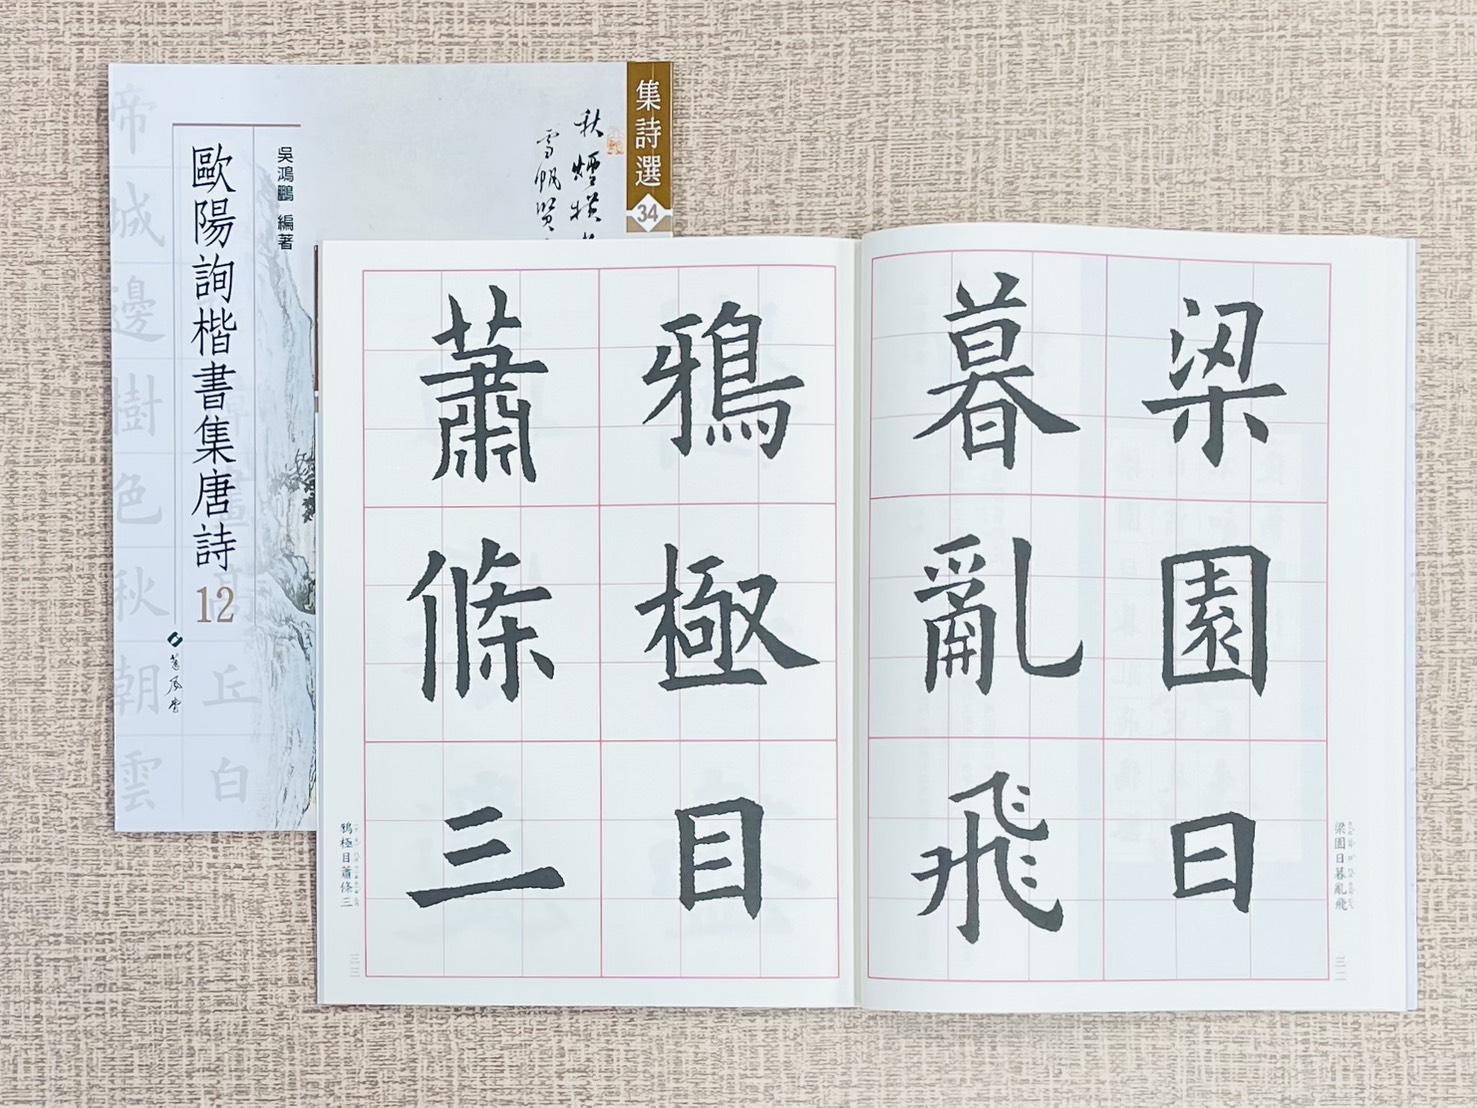 集詩選
34
秋煙橫
雪帆
吳鴻鵬 編著
歐陽詢楷書集唐詩
12
蕙風堂
帝城邊樹色秋朝雲
丘白
梁園日
暮亂飛
鴉極目
蕭條三
梁園日暮亂飛
三二
鴉極目蕭條三
三三